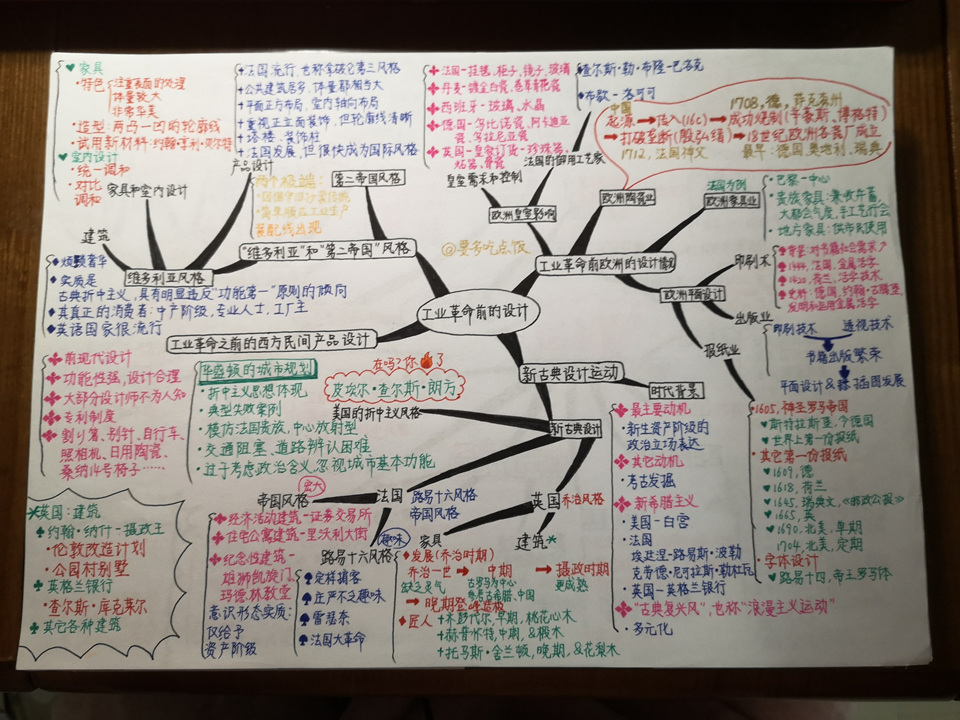 ♥家具
·特色
注重表面的处理
体量较大
非常华美
·造型：两凸一凹的轮廓线
·试用新材料：约翰·亨利·贝尔特
♥室内设计
·统一调和
·对比
调和
家具和室内设计
建筑
维多利亚风格
◆烦琐奢华
◆实质是
古典折中主义，具有明显违反“功能第一”原则的倾向
◆其真正的消费者：中产阶级，专业人士，工厂主
◆英语国家很流行
+法国流行，也称拿破仑第三风格
+公共建筑居多，体量都相当大
+平面正方布局，室内轴向布局
+重视正立面装饰，但轮廓线清晰
+塔楼、装饰柱
+法国发展，但很快成为国际风格
产品设计
两个极端：
装配线出现
第二帝国风格
“维多利亚”和“第二帝国”风格
法国-挂毯，柜子，镜子，玻璃
西班牙-玻璃、水晶
法国的御用工艺家
皇室需求和控制
欧洲皇室影响
◆查尔斯·勒·布隆-巴洛克
◆布歇-洛可可
中国
起源→传入(16c)→成功烧制(辛豪斯、博格特)
1708，德，萨克森州
→打破垄断(殷弘绪)→18世纪，欧洲各瓷厂成立
1712，法国神父
最早：德国，奥地利，瑞典
欧洲陶瓷业
法国为例
欧洲家具业
·巴黎-中心
·贵族家具：兼收并蓄，
大都会气度，手工艺行会
·地方家具：供市民使用
@要多吃点饭
工业革命前欧洲的设计
欧洲平面设计
印刷术
出版业
报纸业
印刷技术
透视技术
书籍出版繁荣
平面设计&插图发展
工业革命前的设计
工业革命之前的西方民间产品设计
前现代设计
功能性强，设计合理
大部分设计师不为人知
专利制度
割刂筹、别针、自行车、
照相机、日用陶瓷、
桑纳14号椅子……
华盛顿的城市规划
·折中主义思想体现
·典型失败案例
·模仿法国贵族，中心放射型
·交通阻塞、道路辨认困难
·过于考虑政治含义，忽视城市基本功能
在吗？你🔥了
皮埃尔·查尔斯·朗方
美国的折中主义风格
新古典设计运动
新古典设计
时代背景
最主要动机
·新生资产阶级的
政治立场表达
其它动机
·考古发掘
新希腊主义
·美国-白宫
·法国
埃廷涅-路易斯·波勒
克劳德·尼可拉斯·勒杜瓦
·英国-英格兰银行
“古典复兴风”，也称“浪漫主义运动”
·多元化
1605，神圣罗马帝国
♥斯特拉斯堡，今德国
♥世界上第一份报纸
·其它第一份报纸
♥1609，德
♥1618，荷兰
♥1645，瑞典文，《邮政公报》
♥1665，英
♥1690，北美，早期
1704，北美，定期
·字体设计
♥路易十四，帝王罗马体
英国：建筑
♠约翰·纳什-摄政王
·伦敦改造计划
·公园村别墅
♠英格兰银行
·查尔斯·库克莱尔
♠其它各种建筑
宏大
帝国风格
法国
路易十六风格
帝国风格
经济活动建筑-证券交易所
住宅公寓建筑-里沃利大街
纪念性建筑-
雄狮凯旋门，
玛德琳教堂
意识形态实质：
仅给予
资产阶级
趣味
路易十六风格
♠庄严不乏趣味
♠雷瑟奈
♠法国大革命
英国
乔治风格
家具
建筑*
◆发展(乔治时期)
乔治一世→中期→摄政时期
缺乏灵气
古罗马为中心
参考古希腊、中国
更成熟
→晚期登峰造极
◆匠人
+齐彭代尔，早期，桃花心木
+赫普怀特，中期，&椴木
+托马斯·舍兰顿，晚期，&花梨木